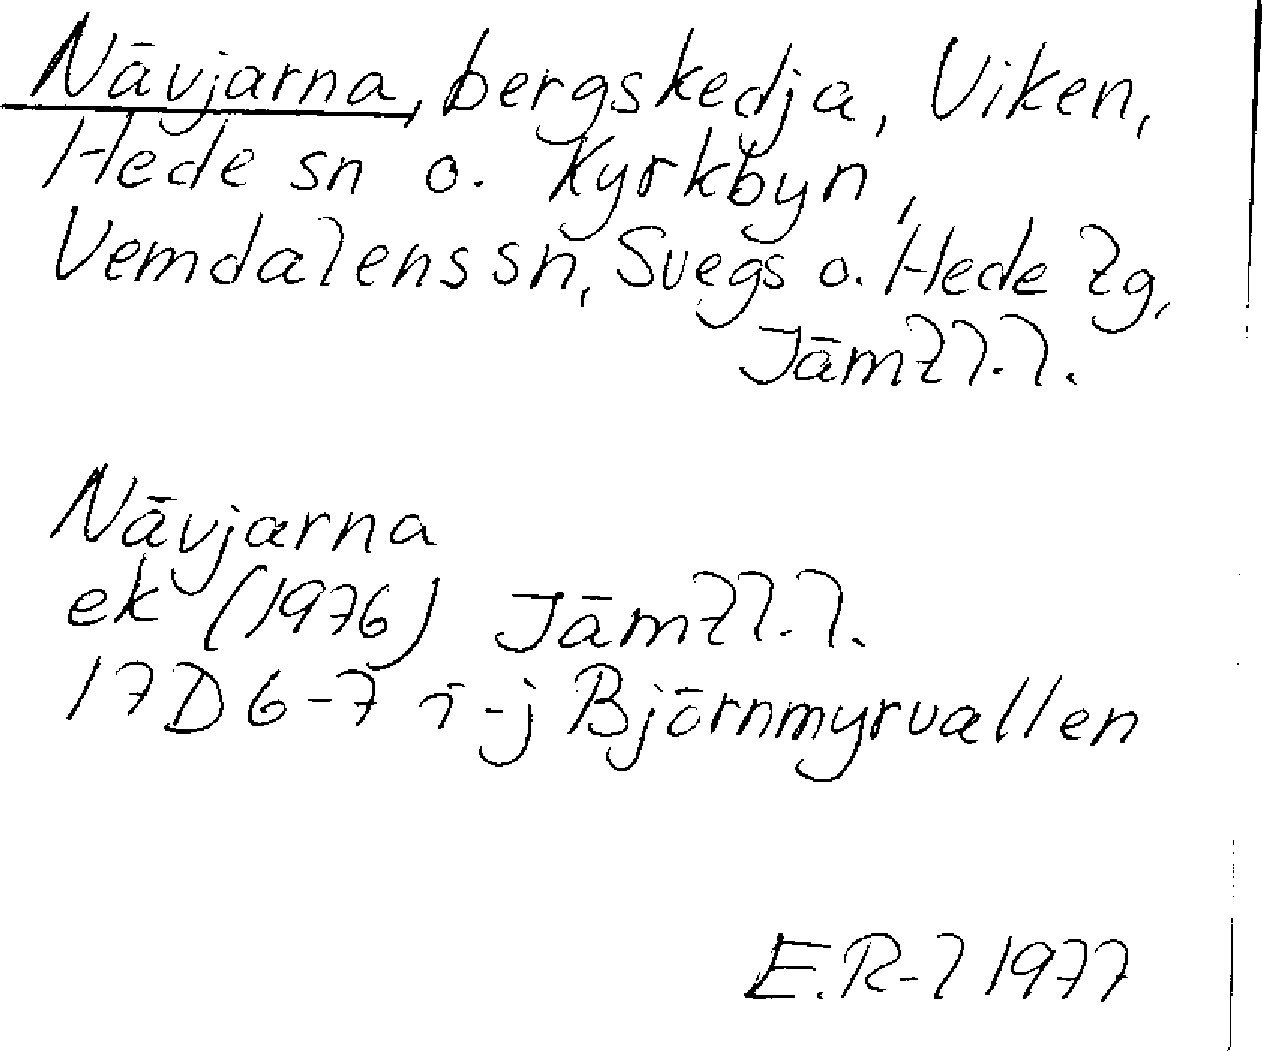 Nävjarna, bergskedja, Viken,
Hede sn o. Kyrkbyn,
Vemdalens sn, Svegs o. Hede tg,
Jämtl.l.
Nävjarna
ek (1976) Jämtl.l.
17D 6-7 i-j Björnmyrvallen
E.R-l 1977